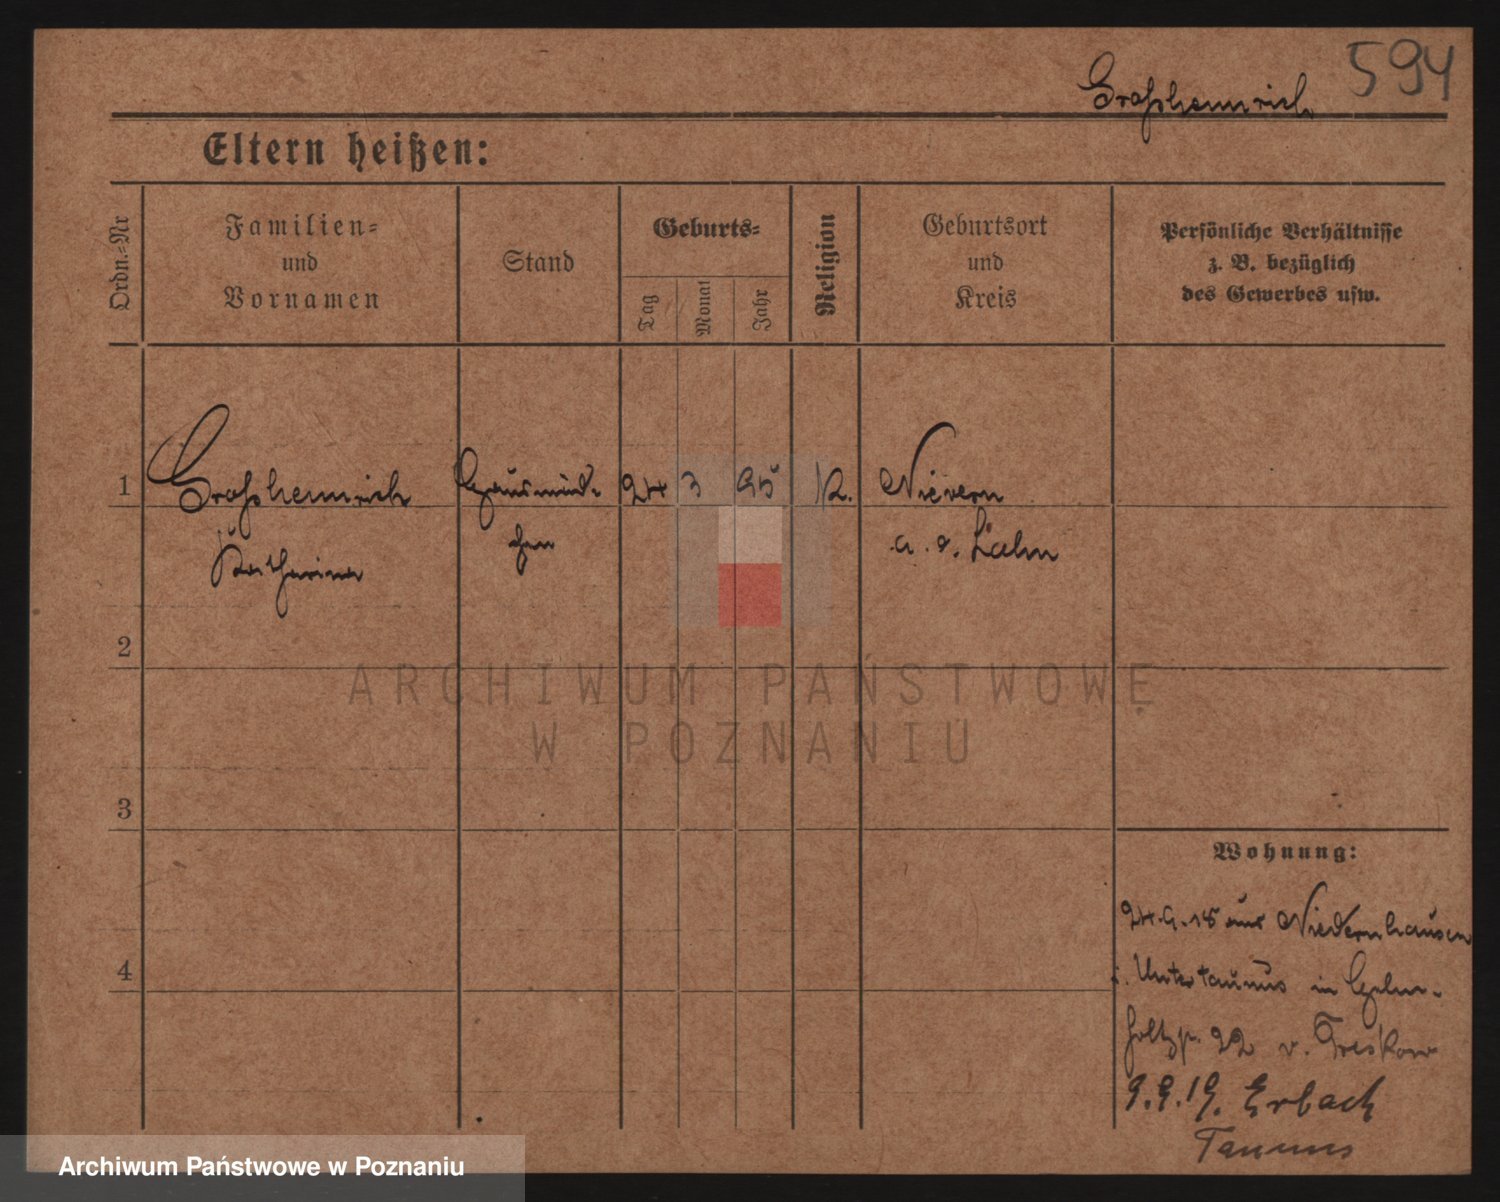 594
Großhennrich
Eltern heißen:
Ordn.-Nr
Familien-
und
Vornamen
Stand
Geburts-
Tag
Monat
Jahr
Religion
Geburtsort
und
Kreis
Persönliche Verhältnisse
z. B. bezüglich
des Gewerbes usw.
1
Großhennrich
Hausmäd-
24
3
95
K.
Nievern
Katharina
chen
a. d. Lahn
2
ARCHIWUM PAŃSTWOWE
W POZNANIU
3
Wohnung:
aus Niedernhausen
i. Untertaunus in Helm-
holtzstr. 22 v. Treskow
9.9.19. Erbach
Taunus
4
Archiwum Państwowe w Poznaniu